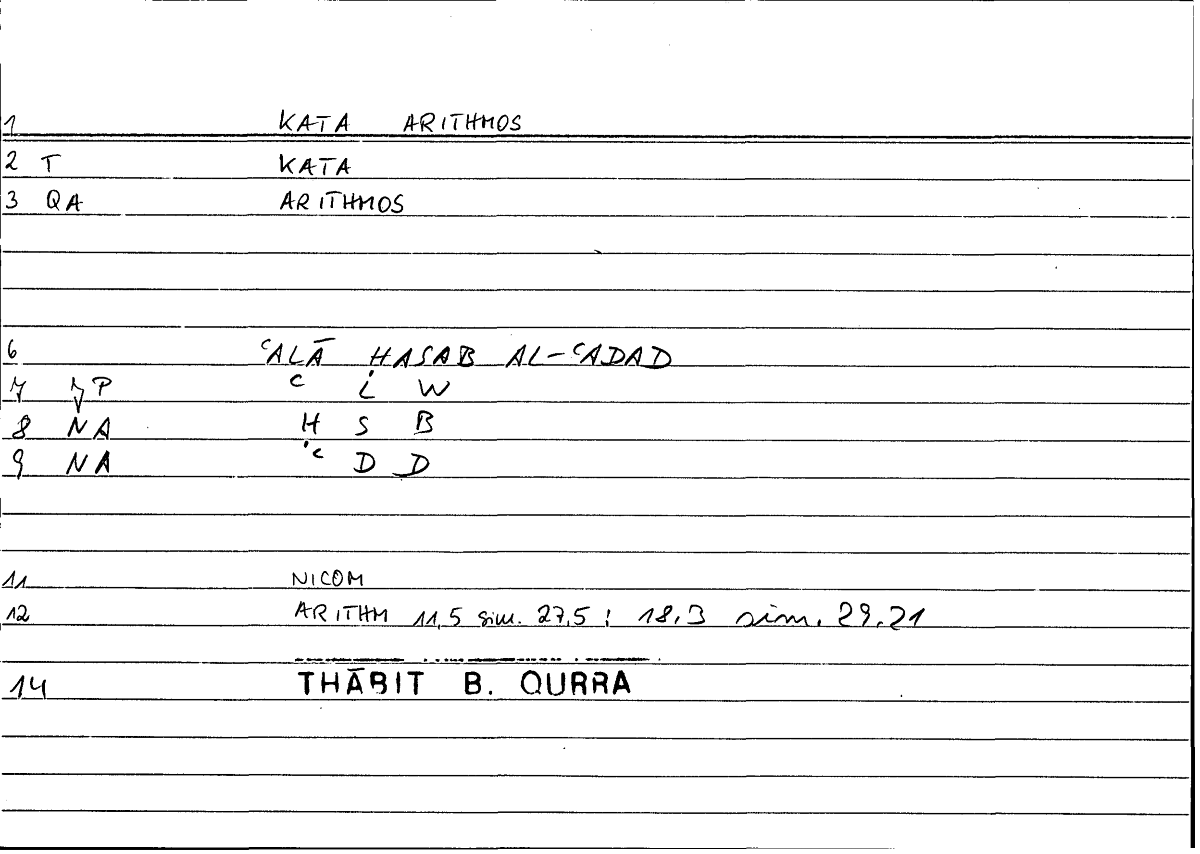 1 KATA ARITHMOS
2 T KATA
3 QA ARITHMOS
6 ʿALĀ ḤASAB AL-ʿADAD
7 P ʿ L W
8 NA Ḥ S B
9 NA ʿ D D
11 NICOM
12 ARITHM 11,5 sim. 27,5 ; 18,3 sim. 29,21
14 THĀBIT B. QURRA